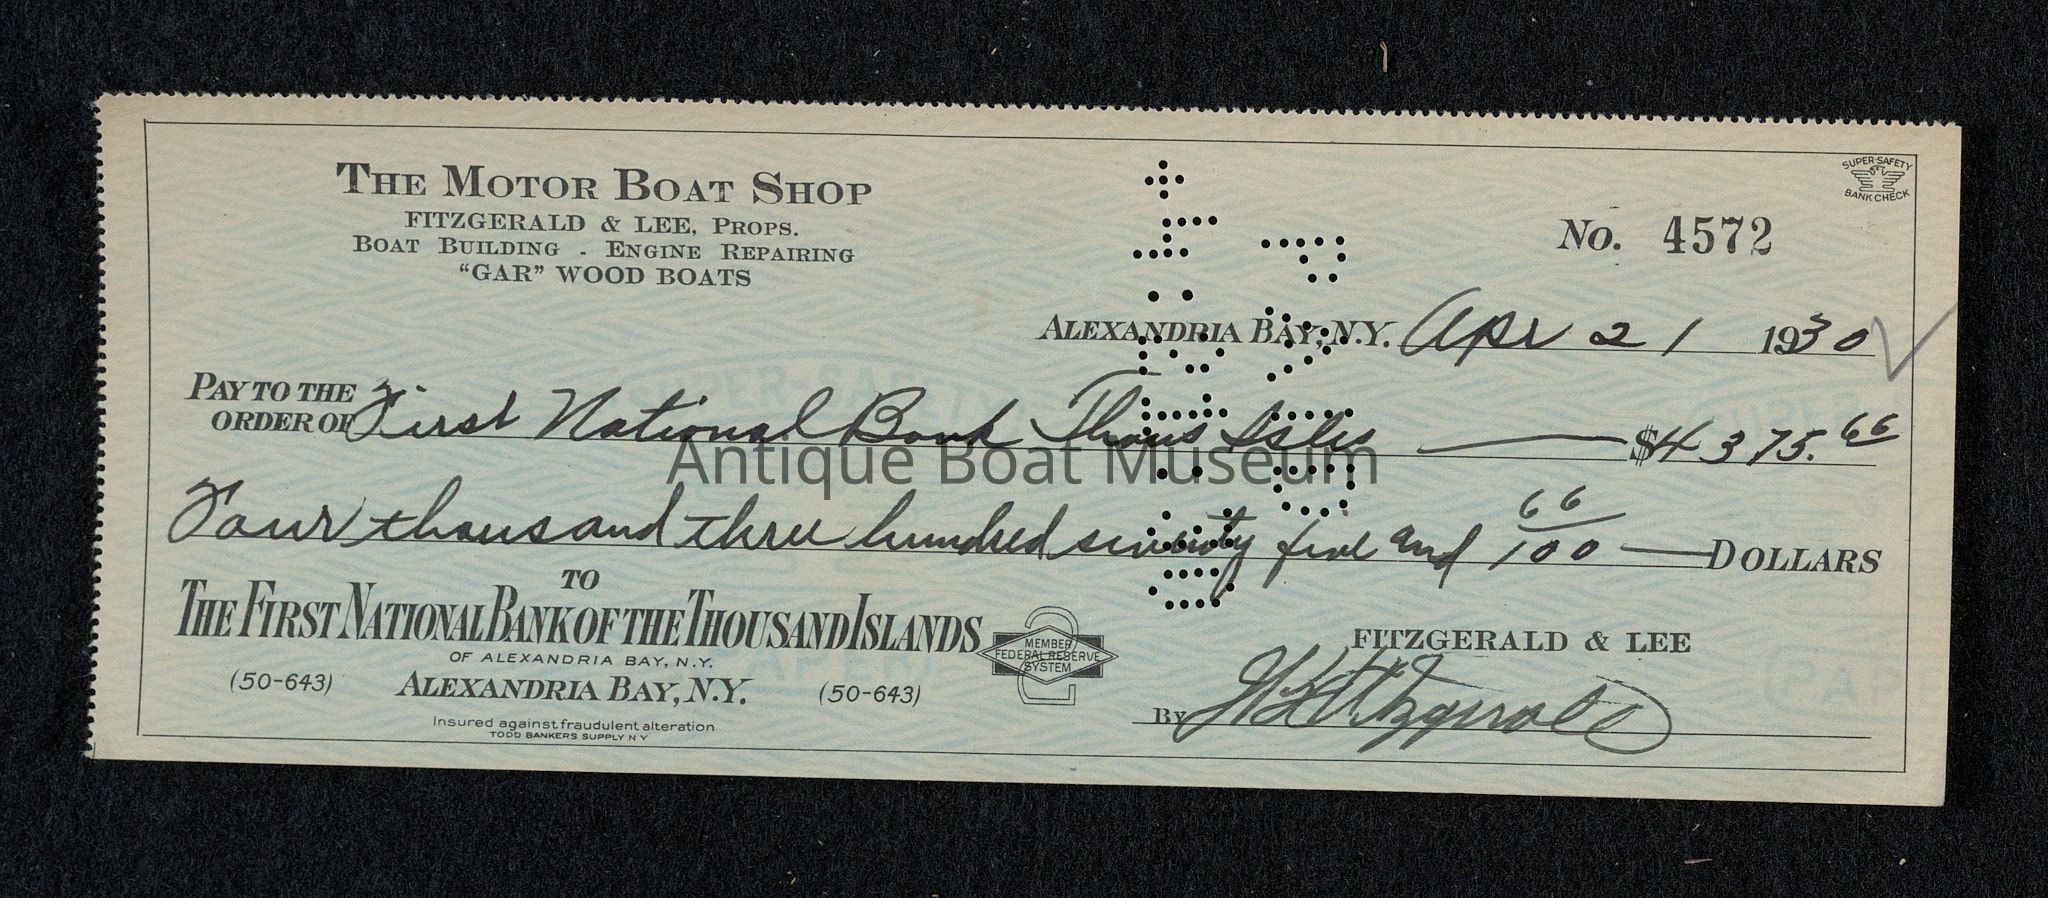 THE MOTOR BOAT SHOP
FITZGERALD & LEE, PROPS.
BOAT BUILDING - ENGINE REPAIRING
"GAR" WOOD BOATS
SUPER-SAFETY
BANK CHECK
No. 4572
ALEXANDRIA BAY, N.Y. Apr 21 1930
PAY TO THE
ORDER OF First National Bank Thous Isles $4375.66
Antique Boat Museum
Four thousand three hundred seventy five and 66/100 DOLLARS
TO
THE FIRST NATIONAL BANK OF THE THOUSAND ISLANDS
OF ALEXANDRIA BAY, N.Y.
(50-643) ALEXANDRIA BAY, N.Y. (50-643)
MEMBER
FEDERAL RESERVE
SYSTEM
2
Insured against fraudulent alteration
TODD BANKERS SUPPLY N Y
FITZGERALD & LEE
BY Fitzgerald